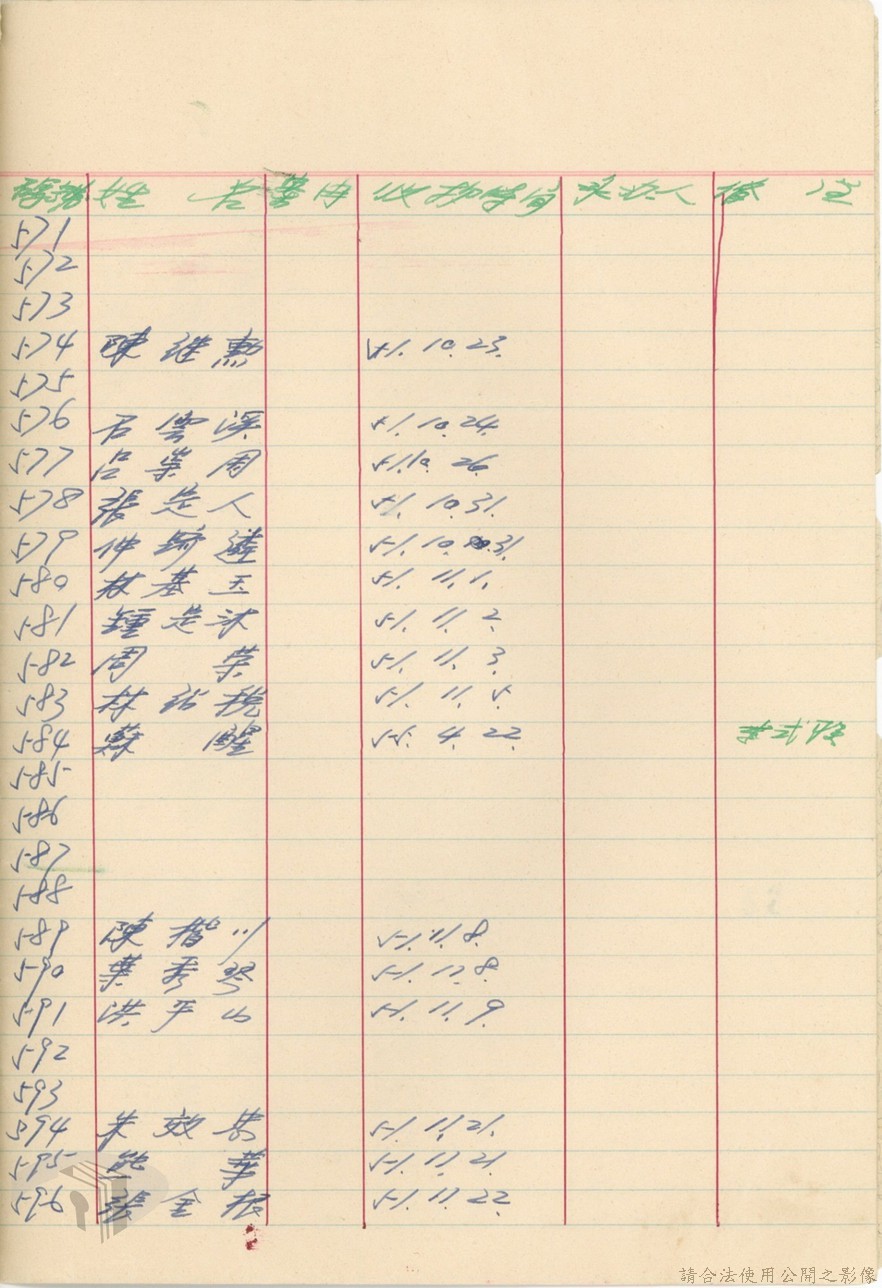 號 姓 名 案由 收 時 人 備 註
571
572
573
574 陳 継 勳 51. 10. 23.
575
576 石 雲 溪 51. 10. 24.
577 呂 業 周 51. 10. 26.
578 張 是 人 51. 10. 31.
579 仲 51. 10. 31.
580 林 基 玉 51. 11. 1.
581 鍾 是 51. 11. 2.
582 周 荣 51. 11. 3.
583 林 51. 11. 5.
584 蘇 醒 55. 4. 22.
585
586
587
588
589 陳 楷 川 51. 11. 8.
590 葉 秀 琴 51. 11. 8.
591 洪 平 山 51. 11. 9.
592
593
594 朱 效 恭 51. 11. 21.
595 華 51. 11. 21.
596 張 金 根 51. 11. 22.
請合法使用公開之影像